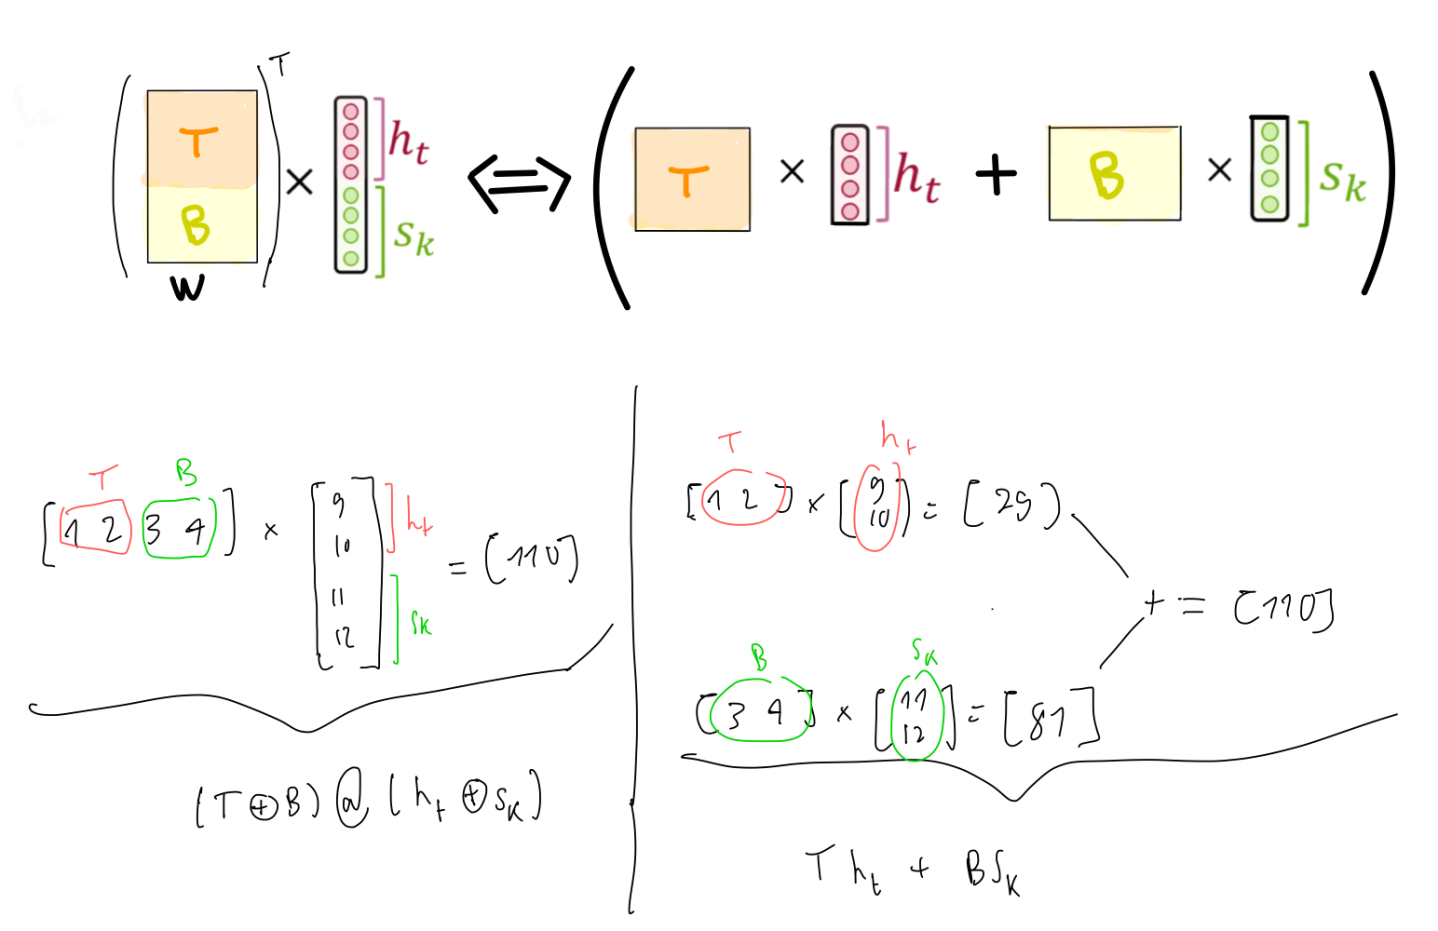 ( T B )ᵀ × hₜ sₖ ⟺ ( T × hₜ + B × sₖ )
W
T B
[1 2 3 4] × [9 10 11 12] hₜ sₖ = [110]
(T ⊕ B) @ (hₜ ⊕ sₖ)
T hₜ
[1 2] × [9 10] = [29]
+ = [110]
B sₖ
[3 4] × [11 12] = [81]
T hₜ + B sₖ